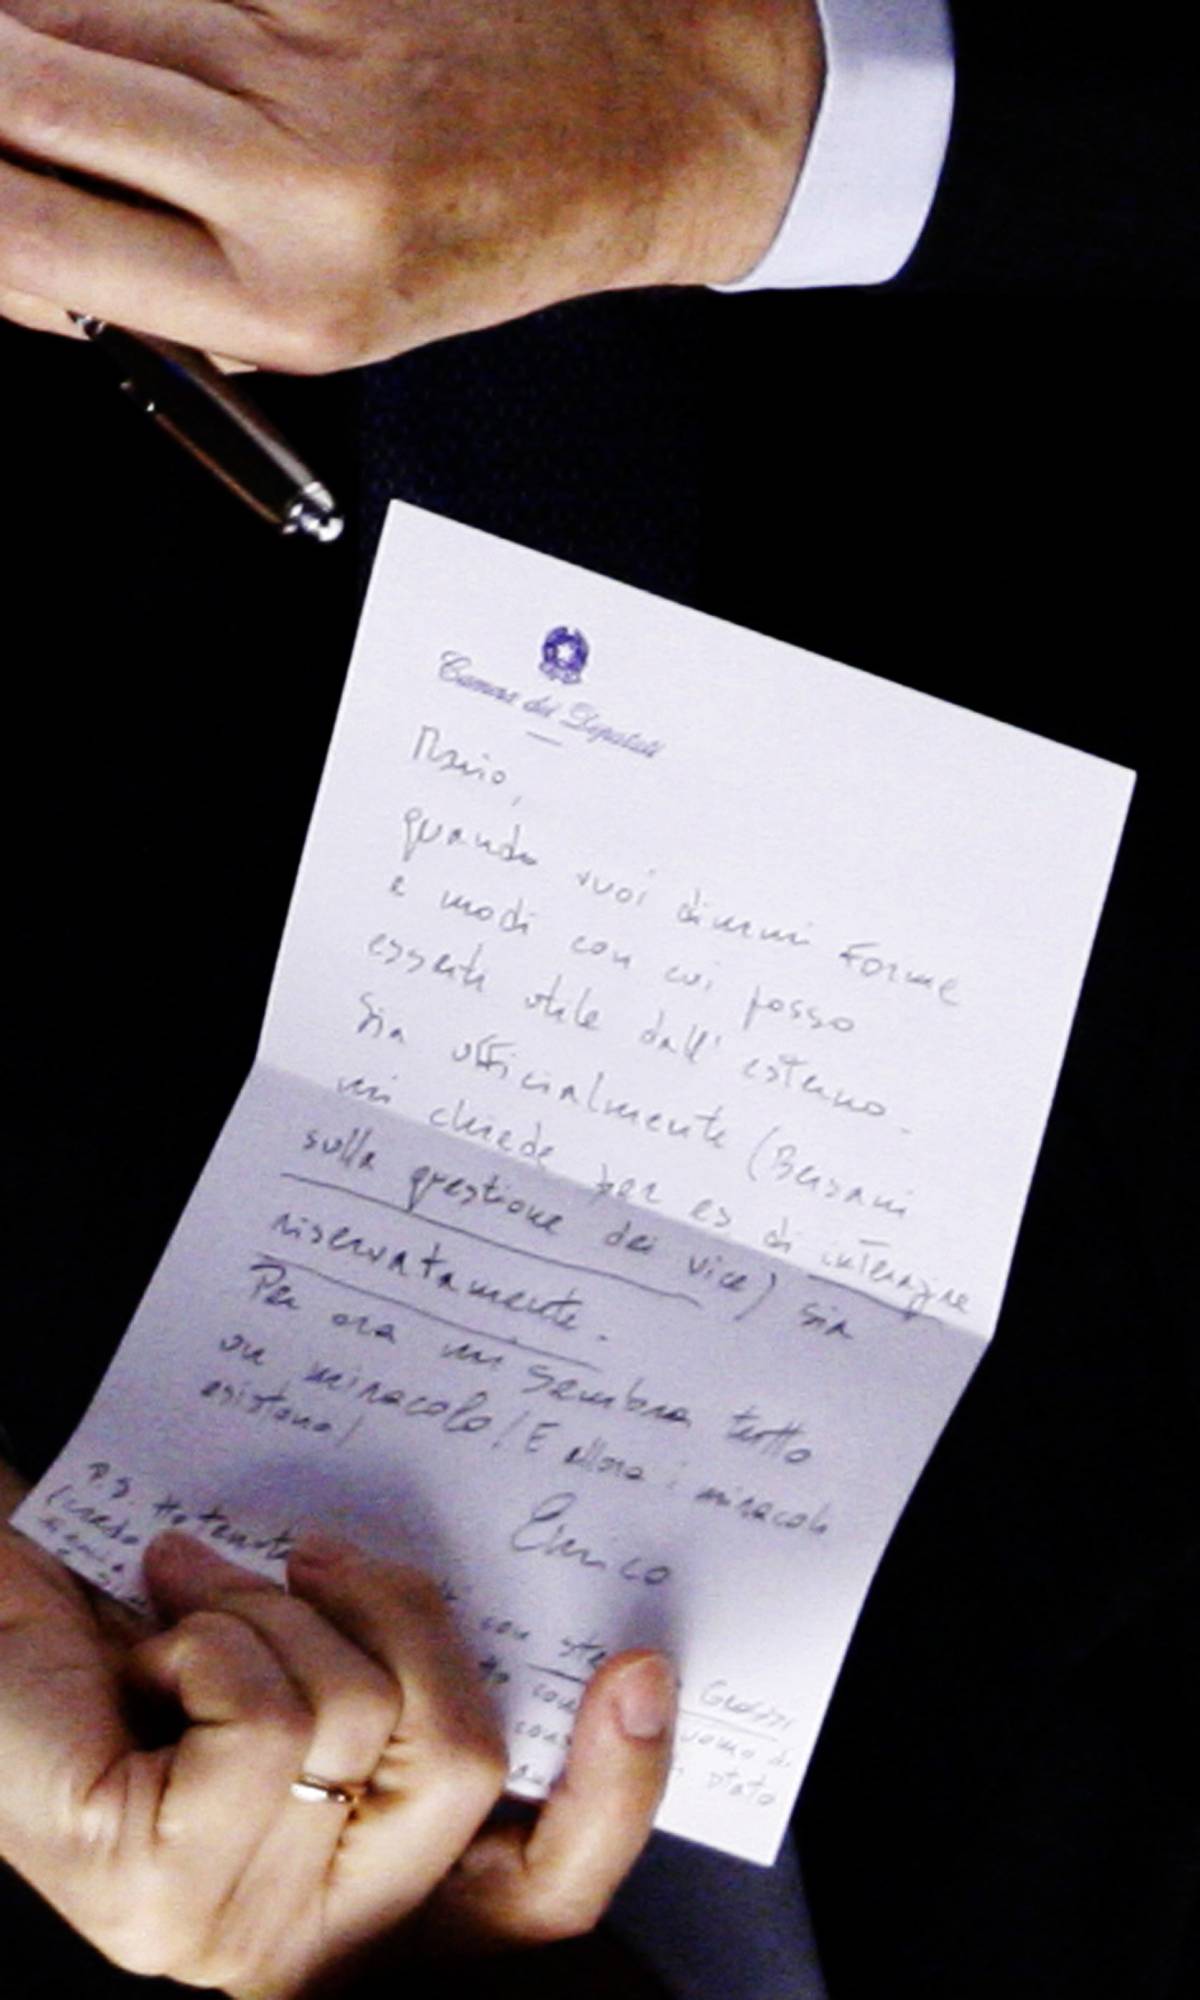 Camera dei Deputati
Mario,
quando vuoi dimmi forme
e modi con cui posso
esserti utile dall'esterno.
Sia ufficialmente (Bersani
mi chiede per es di interagire
sulla questione dei vice) sia
riservatamente.
Per ora mi sembra tutto
un miracolo! E allora i miracoli
esistono!
Enrico
P.S. Ho tenuto con
(credo
uomo di
Stato